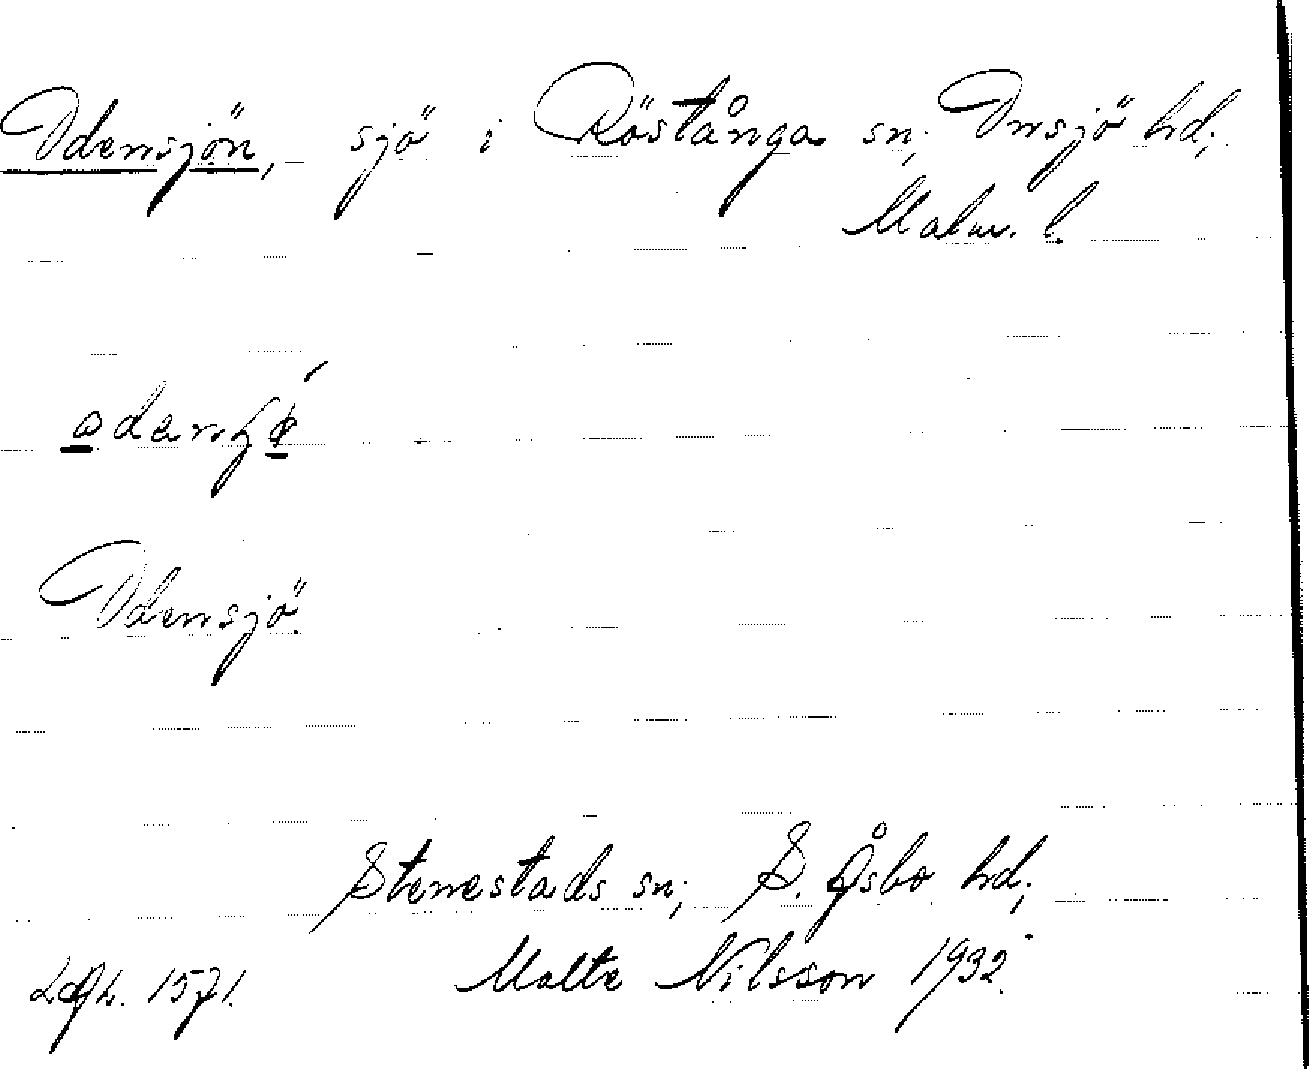 Odensjön, sjö i Röstånga sn; Onsjö hd;
Malm. l.
Odensjö
Stenestads sn; S. Åsbo hd;
Malte Nilsson 1932.
1571.